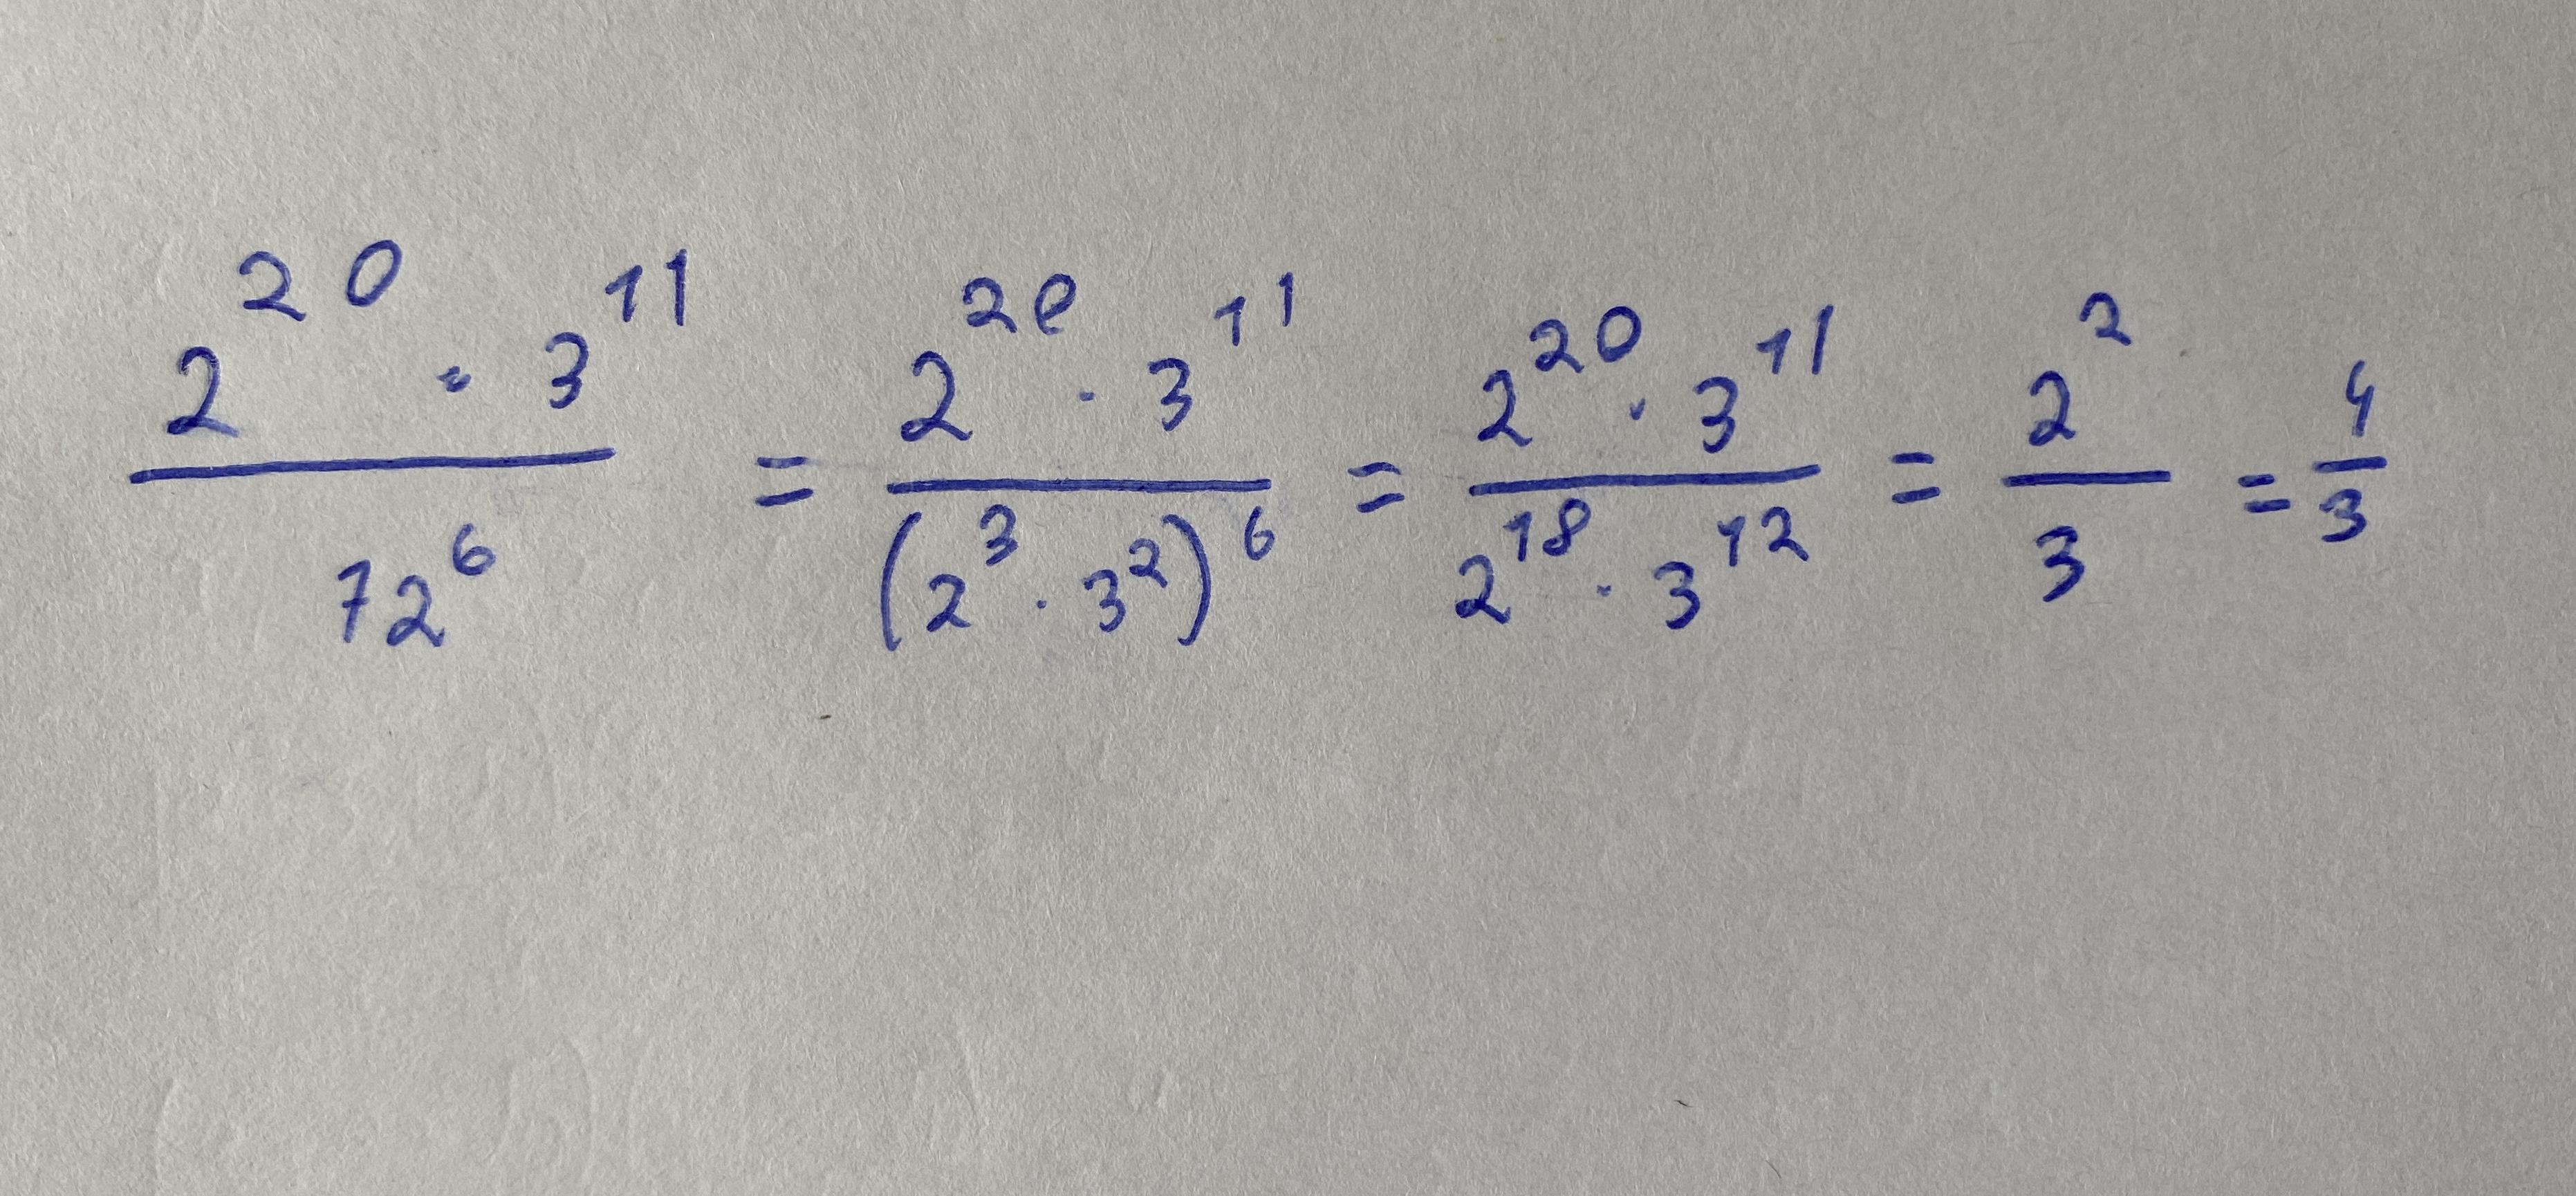 \frac{2^{20} \cdot 3^{11}}{72^6} = \frac{2^{20} \cdot 3^{11}}{(2^3 \cdot 3^2)^6} = \frac{2^{20} \cdot 3^{11}}{2^{18} \cdot 3^{12}} = \frac{2^2}{3} = \frac{4}{3}